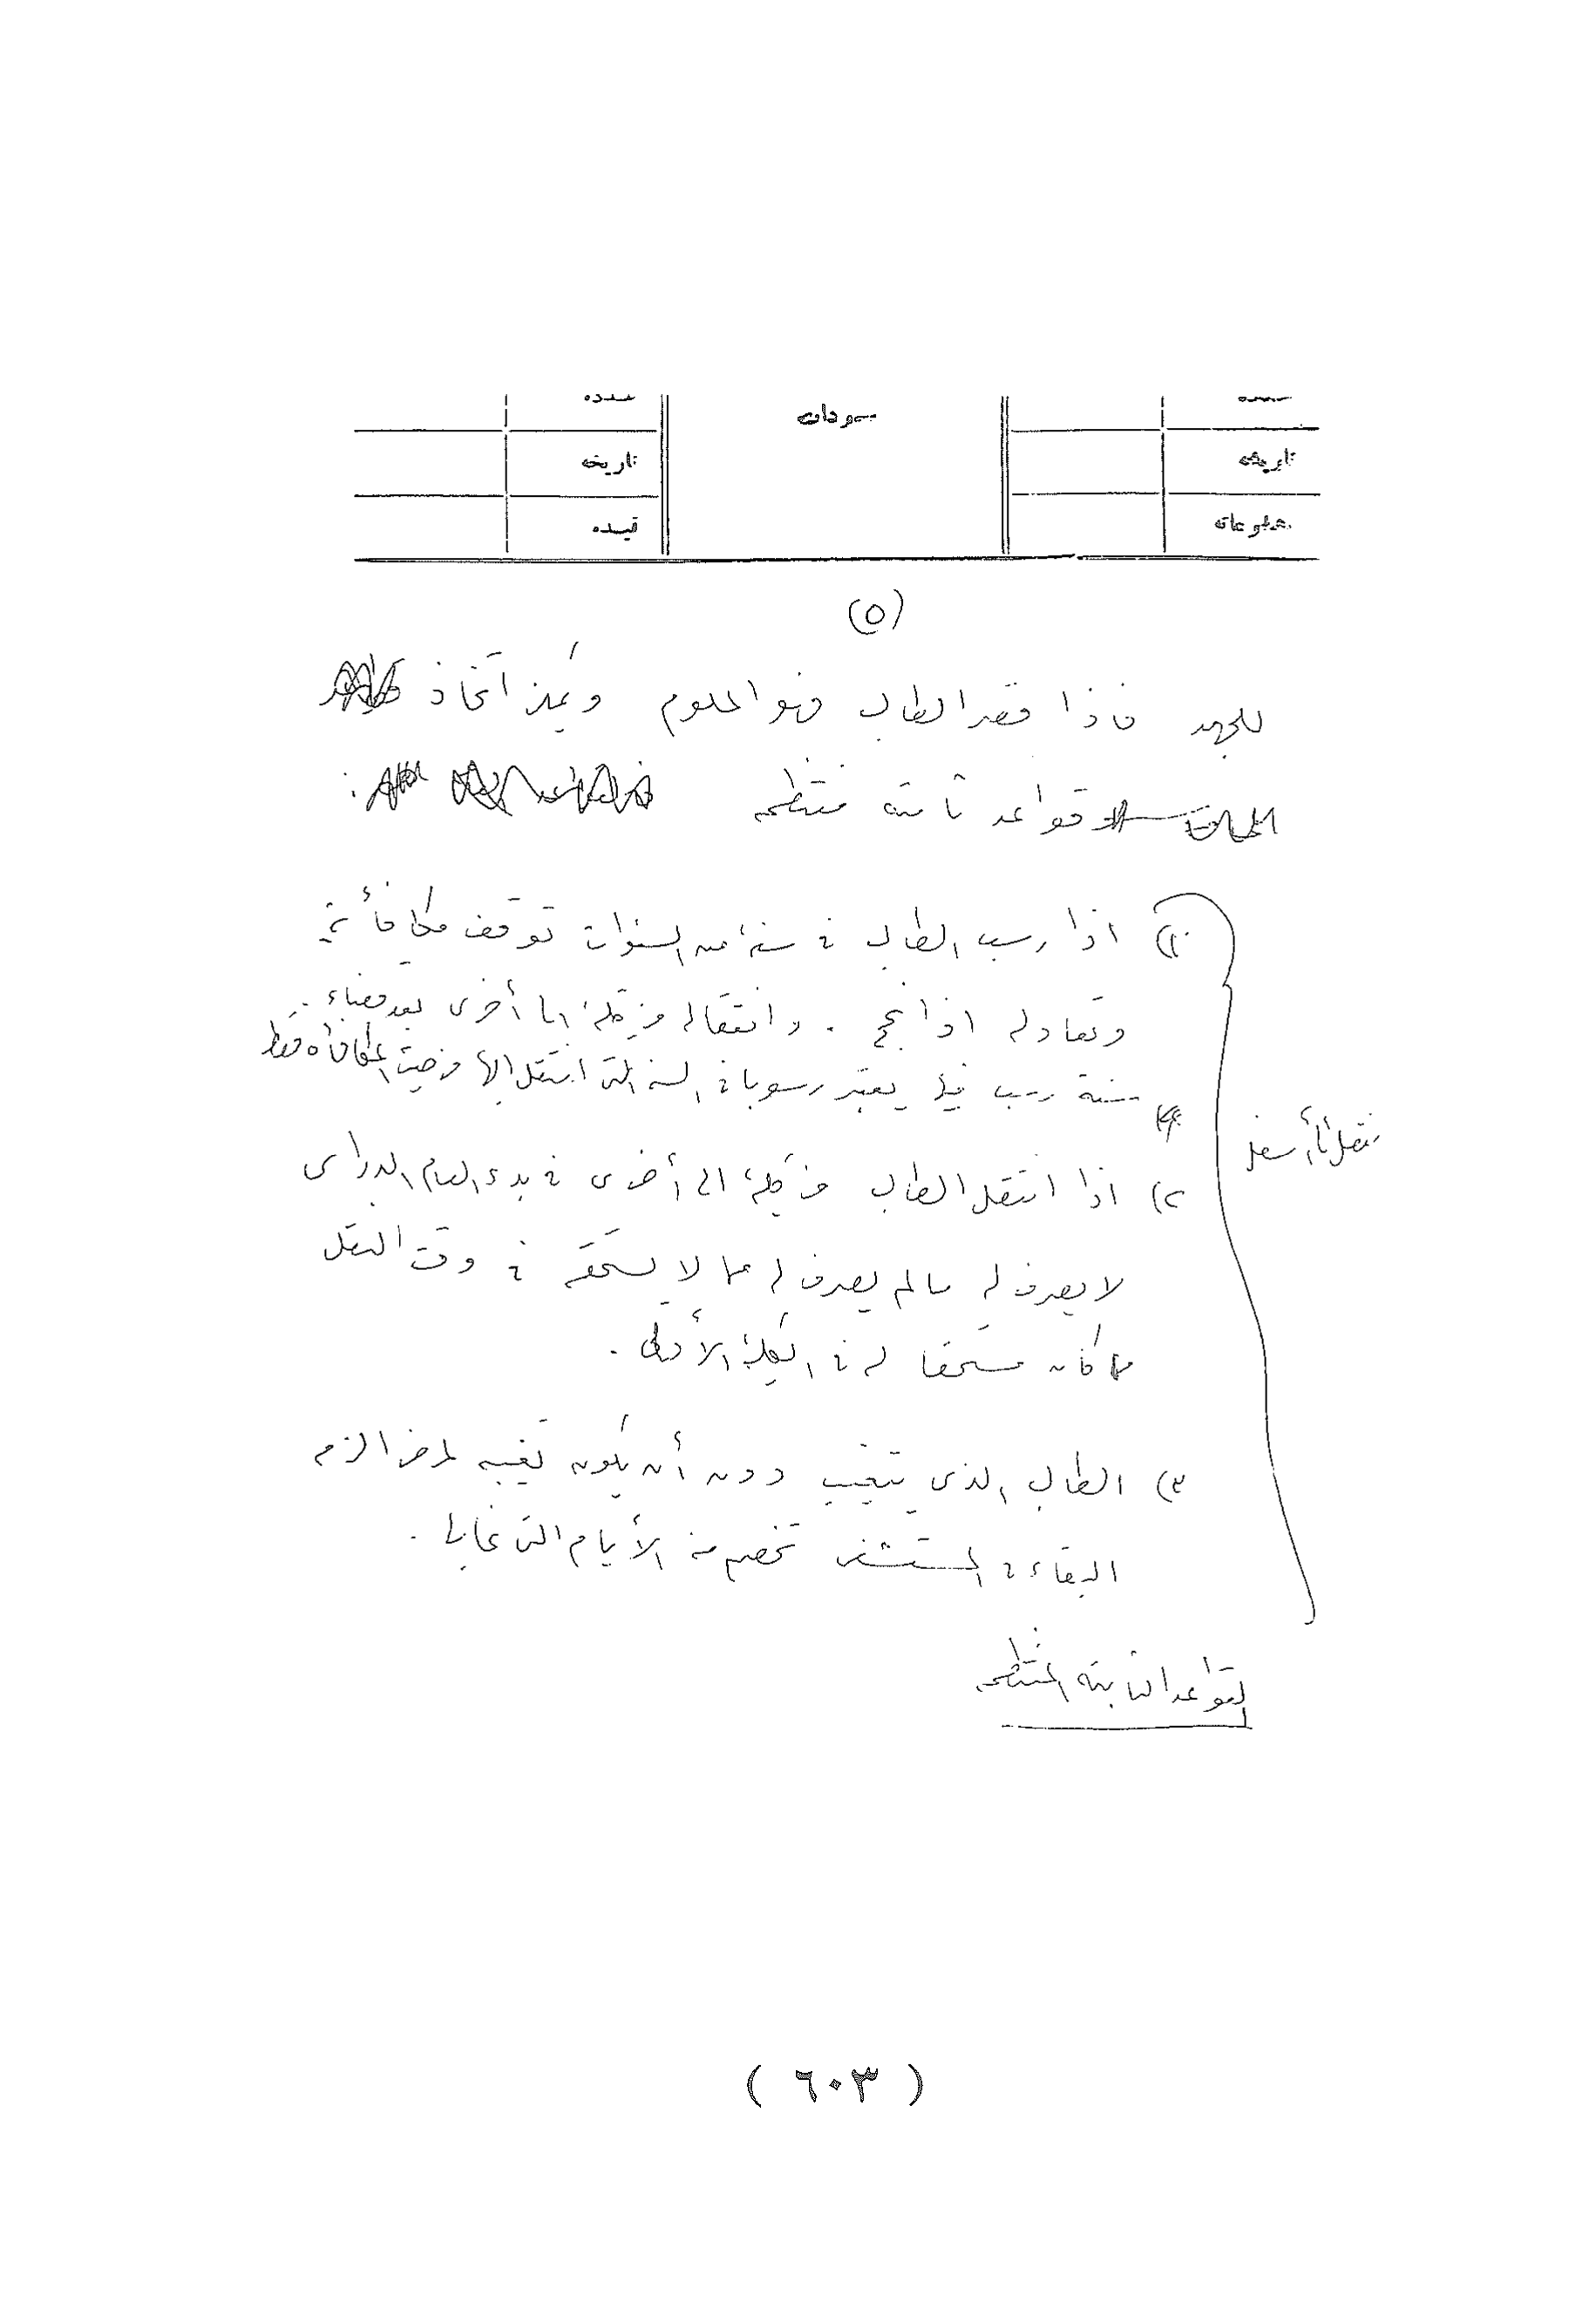 مسودات
تاريخه
تاريخه
قيده
(٥)
للجهد فاذا قصر الطالب فهو الملوم ويمكن اتخاذ
قواعد ثابته منتظمه :
١) اذا رسب الطالب في سنة من السنوات توقف مكافأته
وتعاد له اذا نجح . وانتقاله من كلية الى أخرى بعد قضاء
سنة رسب فيها يعتبر رسوبا في السنة التي انتقل اليها من حيث المكافأة فقط
تنقل الى أسفل
٢) اذا انتقل الطالب من كلية الى أخرى في بدء العام الدراسي
لا يصرف له مالم يصرف له مما لا يستحقه في وقت النقل
مما كان مستحقا له في الكلية الأولى .
٣) الطالب الذي يتغيب دون أن يكون تغيبه لمرض الزم
البقاء في المستشفى تخصم منه الأيام التي غابها .
القواعد الثابته المنتظمه
( ٦٠٣ )